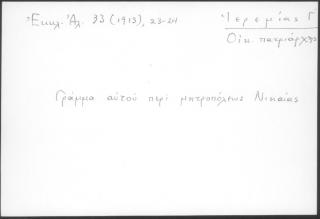 Ἐκκλ. Ἀλ. 33 (1913), 23-24
Ἱερεμίας Γ
Οἰκ. πατριάρχης
Γράμμα αὐτοῦ περὶ μητροπόλεως Νικαίας